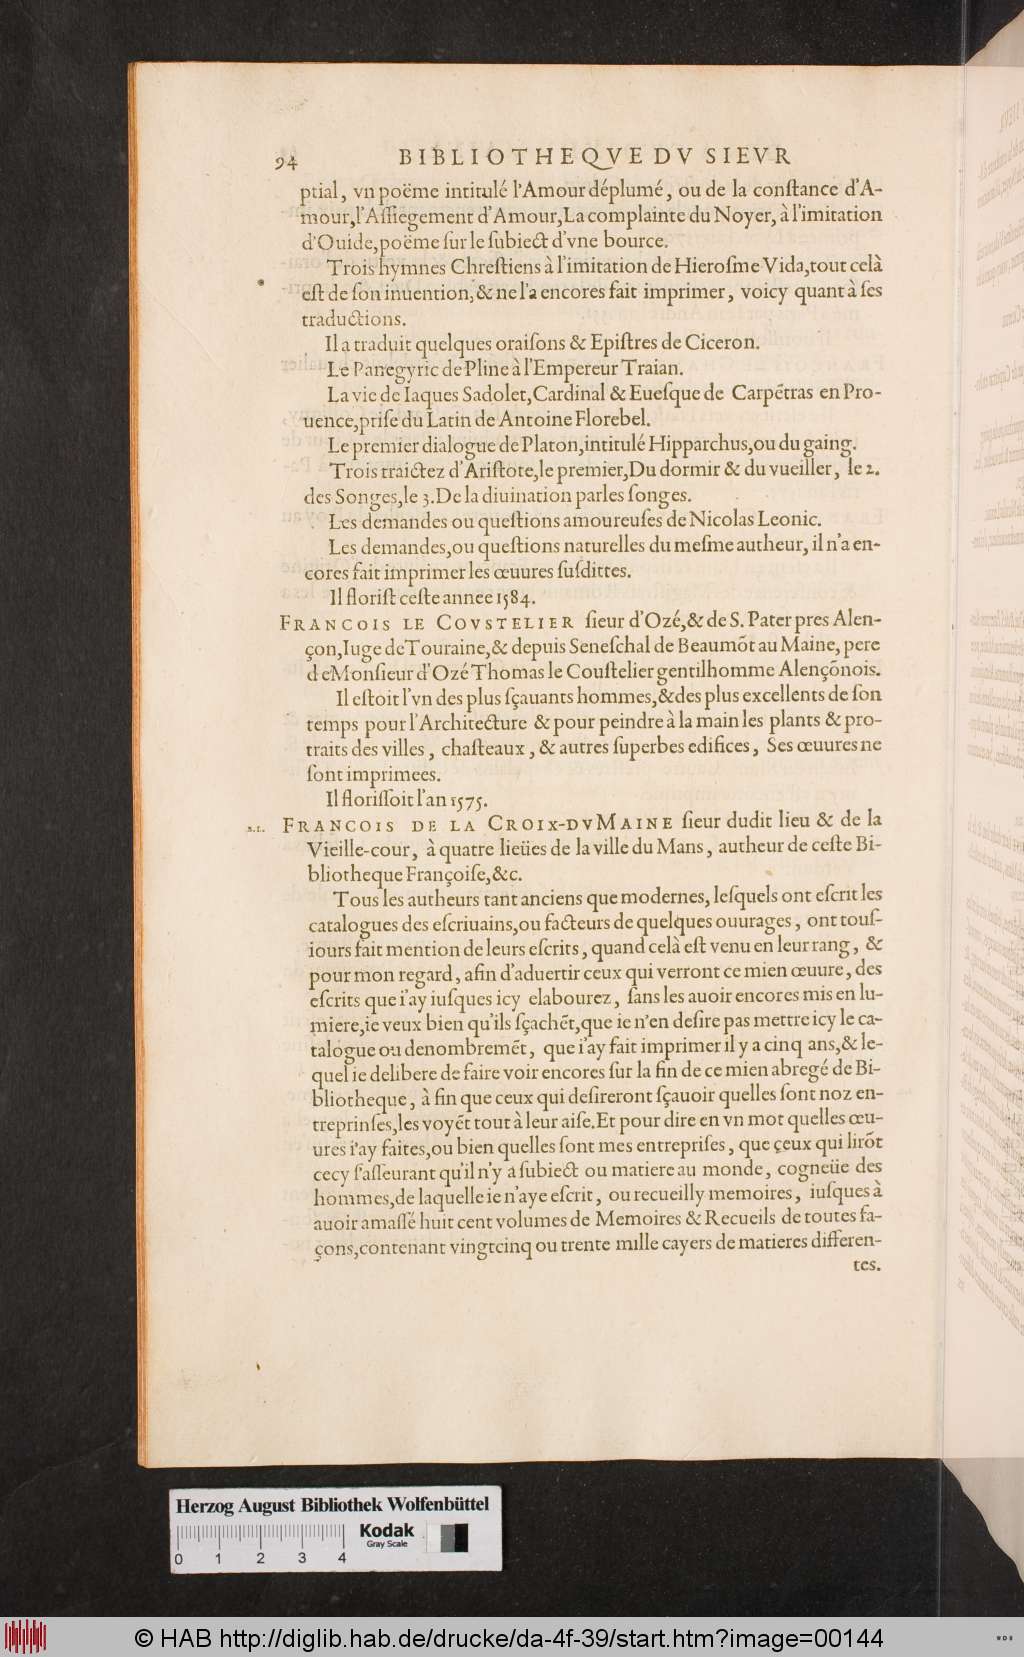 94 BIBLIOTHEQVE DV SIEVR
ptial, vn poëme intitulé l'Amour déplumé, ou de la conſtance d'A-
mour,l'Aſſiegement d'Amour,La complainte du Noyer, à l'imitation
d'Ouide,poëme ſur le ſubiect d'vne bource.
Trois hymnes Chreſtiens à l'imitation de Hieroſme Vida,tout celà
eſt de ſon inuention, & ne l'a encores fait imprimer, voicy quant à ſes
traductions.
Il a traduit quelques oraiſons & Epiſtres de Ciceron.
Le Panegyric de Pline à l'Empereur Traian.
La vie de Iaques Sadolet,Cardinal & Eueſque de Carpẽtras en Pro-
uence,priſe du Latin de Antoine Florebel.
Le premier dialogue de Platon,intitulé Hipparchus,ou du gaing.
Trois traictez d'Ariſtote,le premier,Du dormir & du vueiller, le 2.
des Songes,le 3.De la diuination par les ſonges.
Les demandes ou queſtions amoureuſes de Nicolas Leonic.
Les demandes,ou queſtions naturelles du meſme autheur, il n'a en-
cores fait imprimer les œuures ſuſdittes.
Il floriſt ceſte annee 1584.
FRANCOIS LE COVSTELIER ſieur d'Ozé,& de S. Pater pres Alen-
çon,Iuge de Touraine,& depuis Seneſchal de Beaumõt au Maine, pere
de Monſieur d'Ozé Thomas le Couſtelier gentilhomme Alençõnois.
Il eſtoit l'vn des plus ſçauants hommes,& des plus excellents de ſon
temps pour l'Architecture & pour peindre à la main les plants & pro-
traits des villes, chaſteaux, & autres ſuperbes edifices, Ses œuures ne
ſont imprimees.
Il floriſſoit l'an 1575.
FRANCOIS DE LA CROIX-DV MAINE ſieur dudit lieu & de la
Vieille-cour, à quatre lieües de la ville du Mans, autheur de ceſte Bi-
bliotheque Françoiſe,&c.
Tous les autheurs tant anciens que modernes, leſquels ont eſcrit les
catalogues des eſcriuains,ou facteurs de quelques ouurages, ont touſ-
iours fait mention de leurs eſcrits, quand celà eſt venu en leur rang, &
pour mon regard, afin d'aduertir ceux qui verront ce mien œuure, des
eſcrits que i'ay iuſques icy elabourez, ſans les auoir encores mis en lu-
miere,ie veux bien qu'ils ſçachẽt,que ie n'en deſire pas mettre icy le ca-
talogue ou denombremẽt, que i'ay fait imprimer il y a cinq ans,& le-
quel ie delibere de faire voir encores ſur la fin de ce mien abregé de Bi-
bliotheque, à fin que ceux qui deſireront ſçauoir quelles ſont noz en-
treprinſes,les voyẽt tout à leur aiſe.Et pour dire en vn mot quelles œu-
ures i'ay faites,ou bien quelles ſont mes entrepriſes, que çeux qui lirõt
cecy ſ'aſſeurant qu'il n'y a ſubiect ou matiere au monde, cogneüe des
hommes,de laquelle ie n'aye eſcrit, ou recueilly memoires, iuſques à
auoir amaſſé huit cent volumes de Memoires & Recueils de toutes fa-
çons,contenant vingtcinq ou trente mille cayers de matieres differen-
tes.
Herzog August Bibliothek Wolfenbüttel
Kodak
Gray Scale
0 1 2 3 4
© HAB http://diglib.hab.de/drucke/da-4f-39/start.htm?image=00144